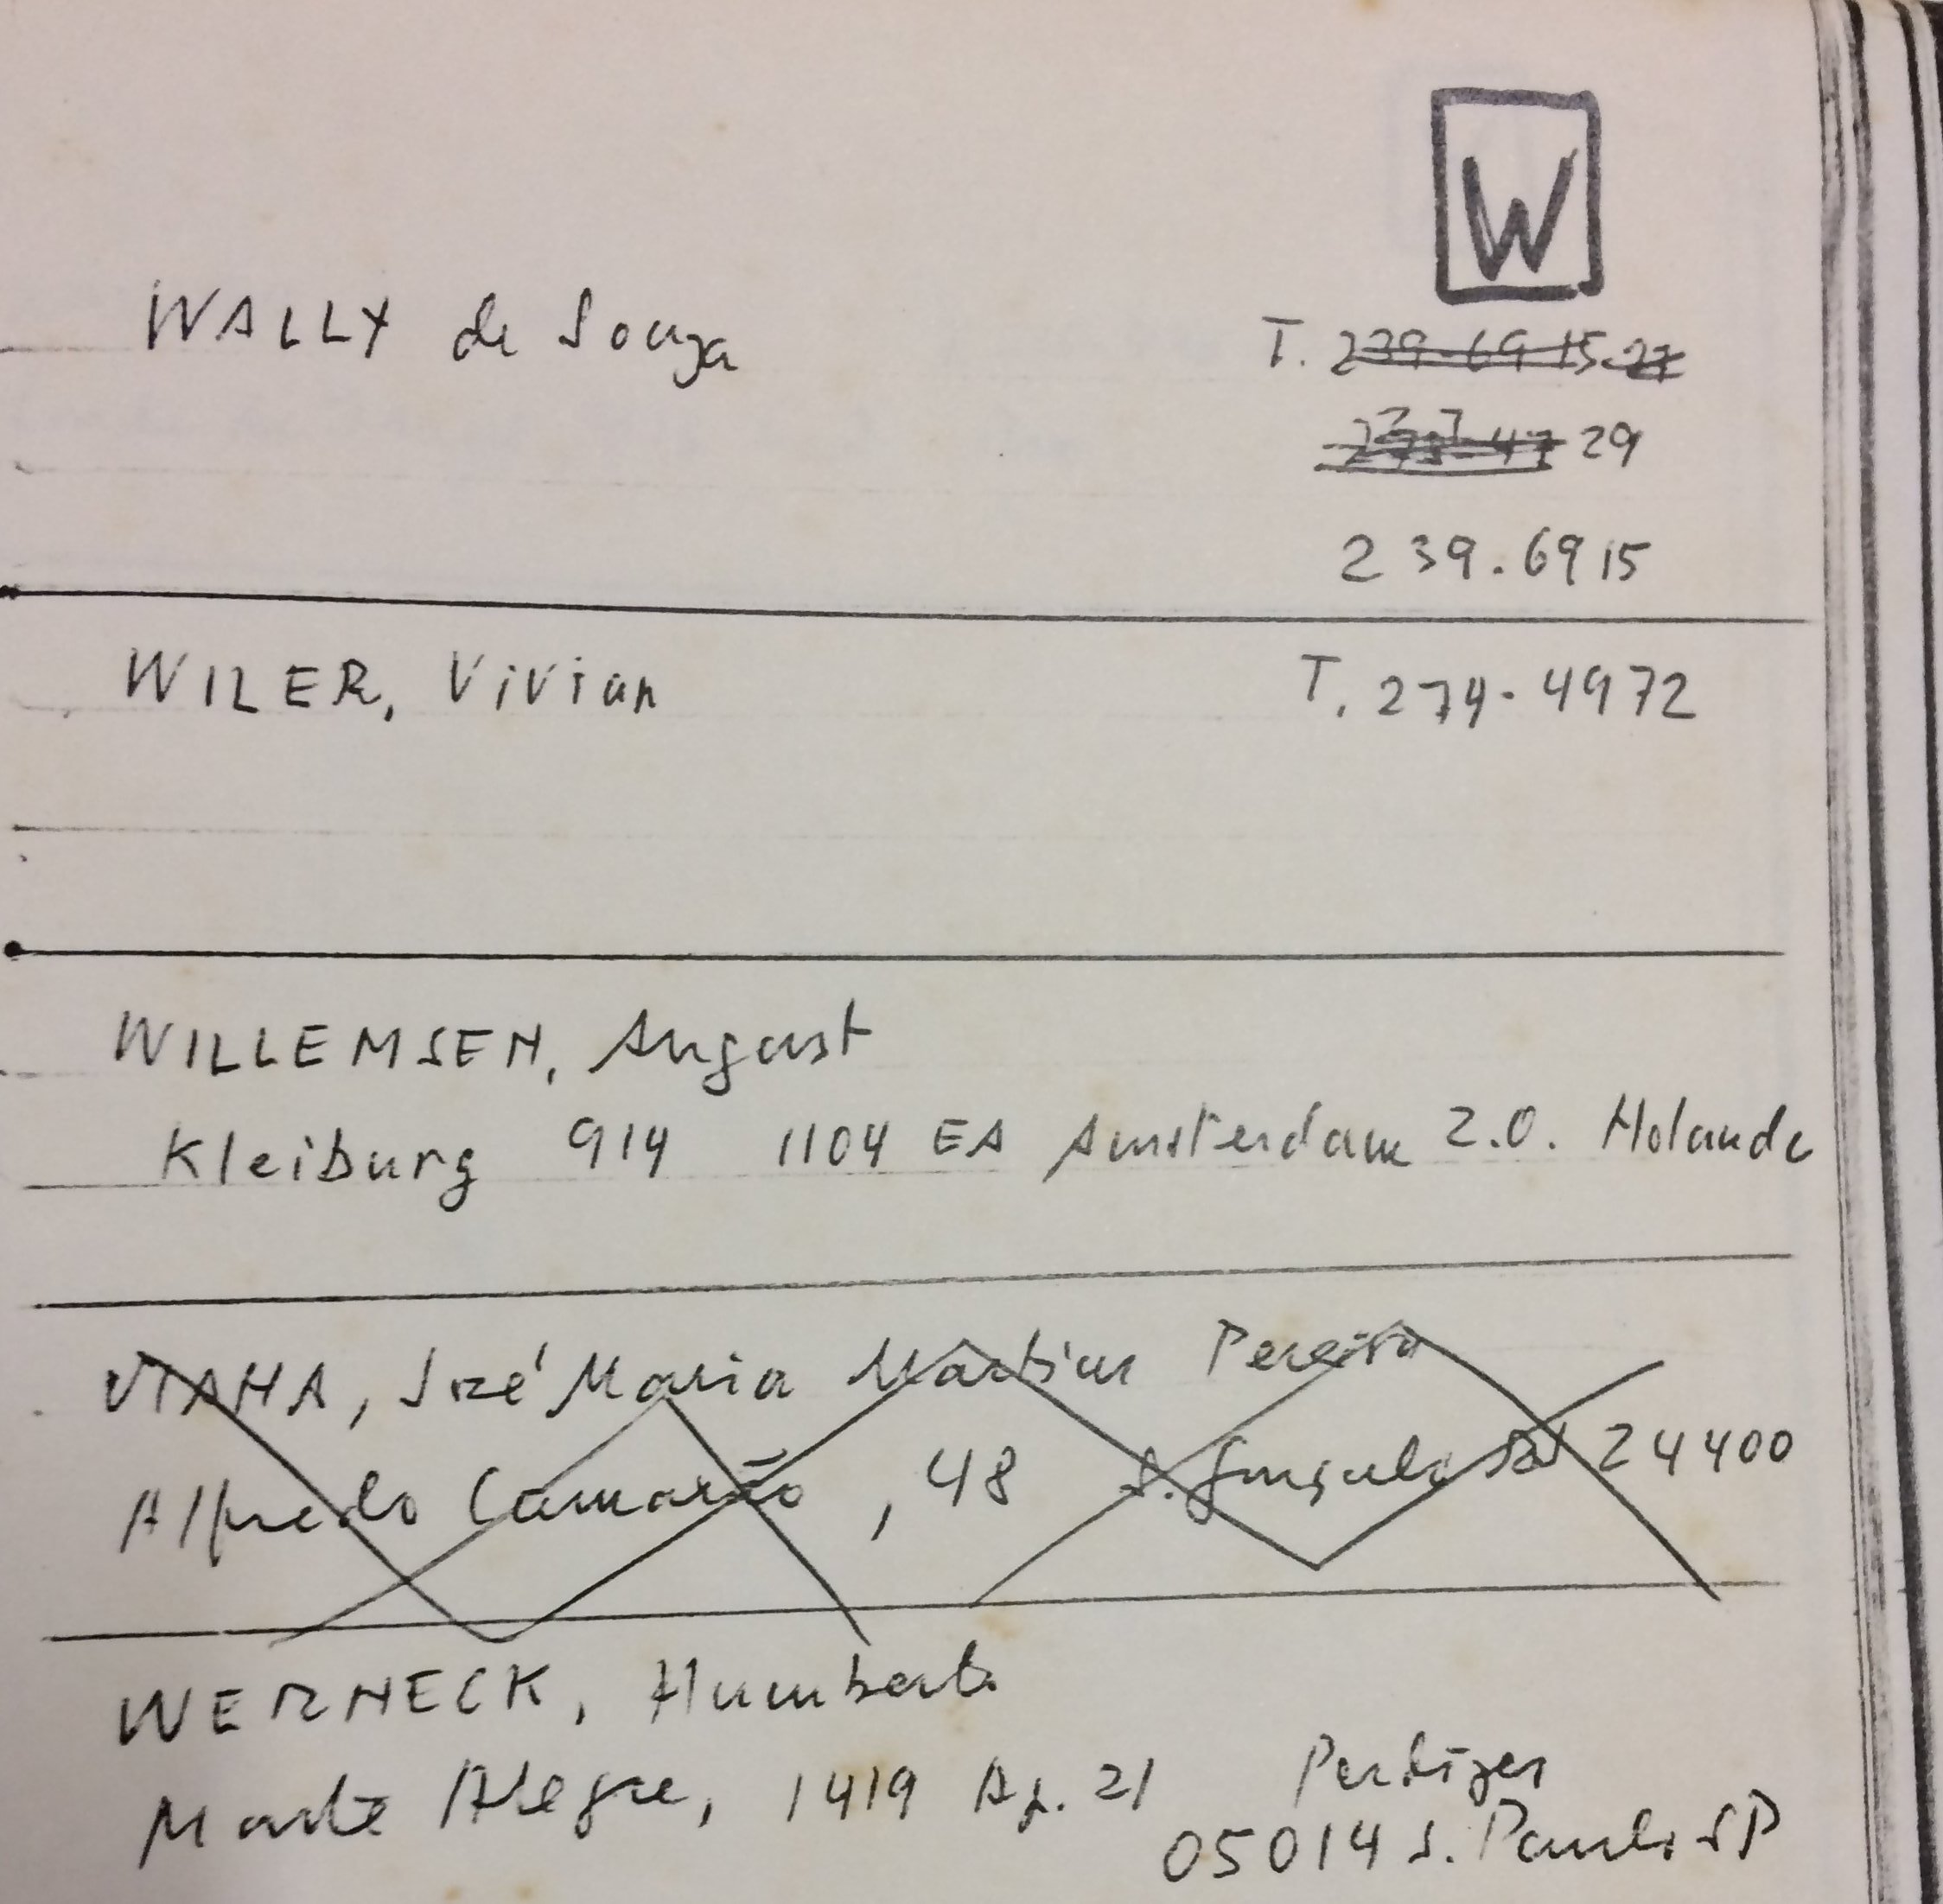 W
WALLY de Souza T. 239-69 15-27
29
239.6915
WILER, Vivian T. 274-4972
WILLEMSEN, August
Kleiburg 914 1104 EA Amsterdam Z.O. Holanda
José Maria Martins Pereira
Alfredo Camarão, 48 S. Gonçalo RJ 24400
WERNECK, Humberto
Monte Alegre, 1419 Ap. 21 Perdizes
05014 S. Paulo SP